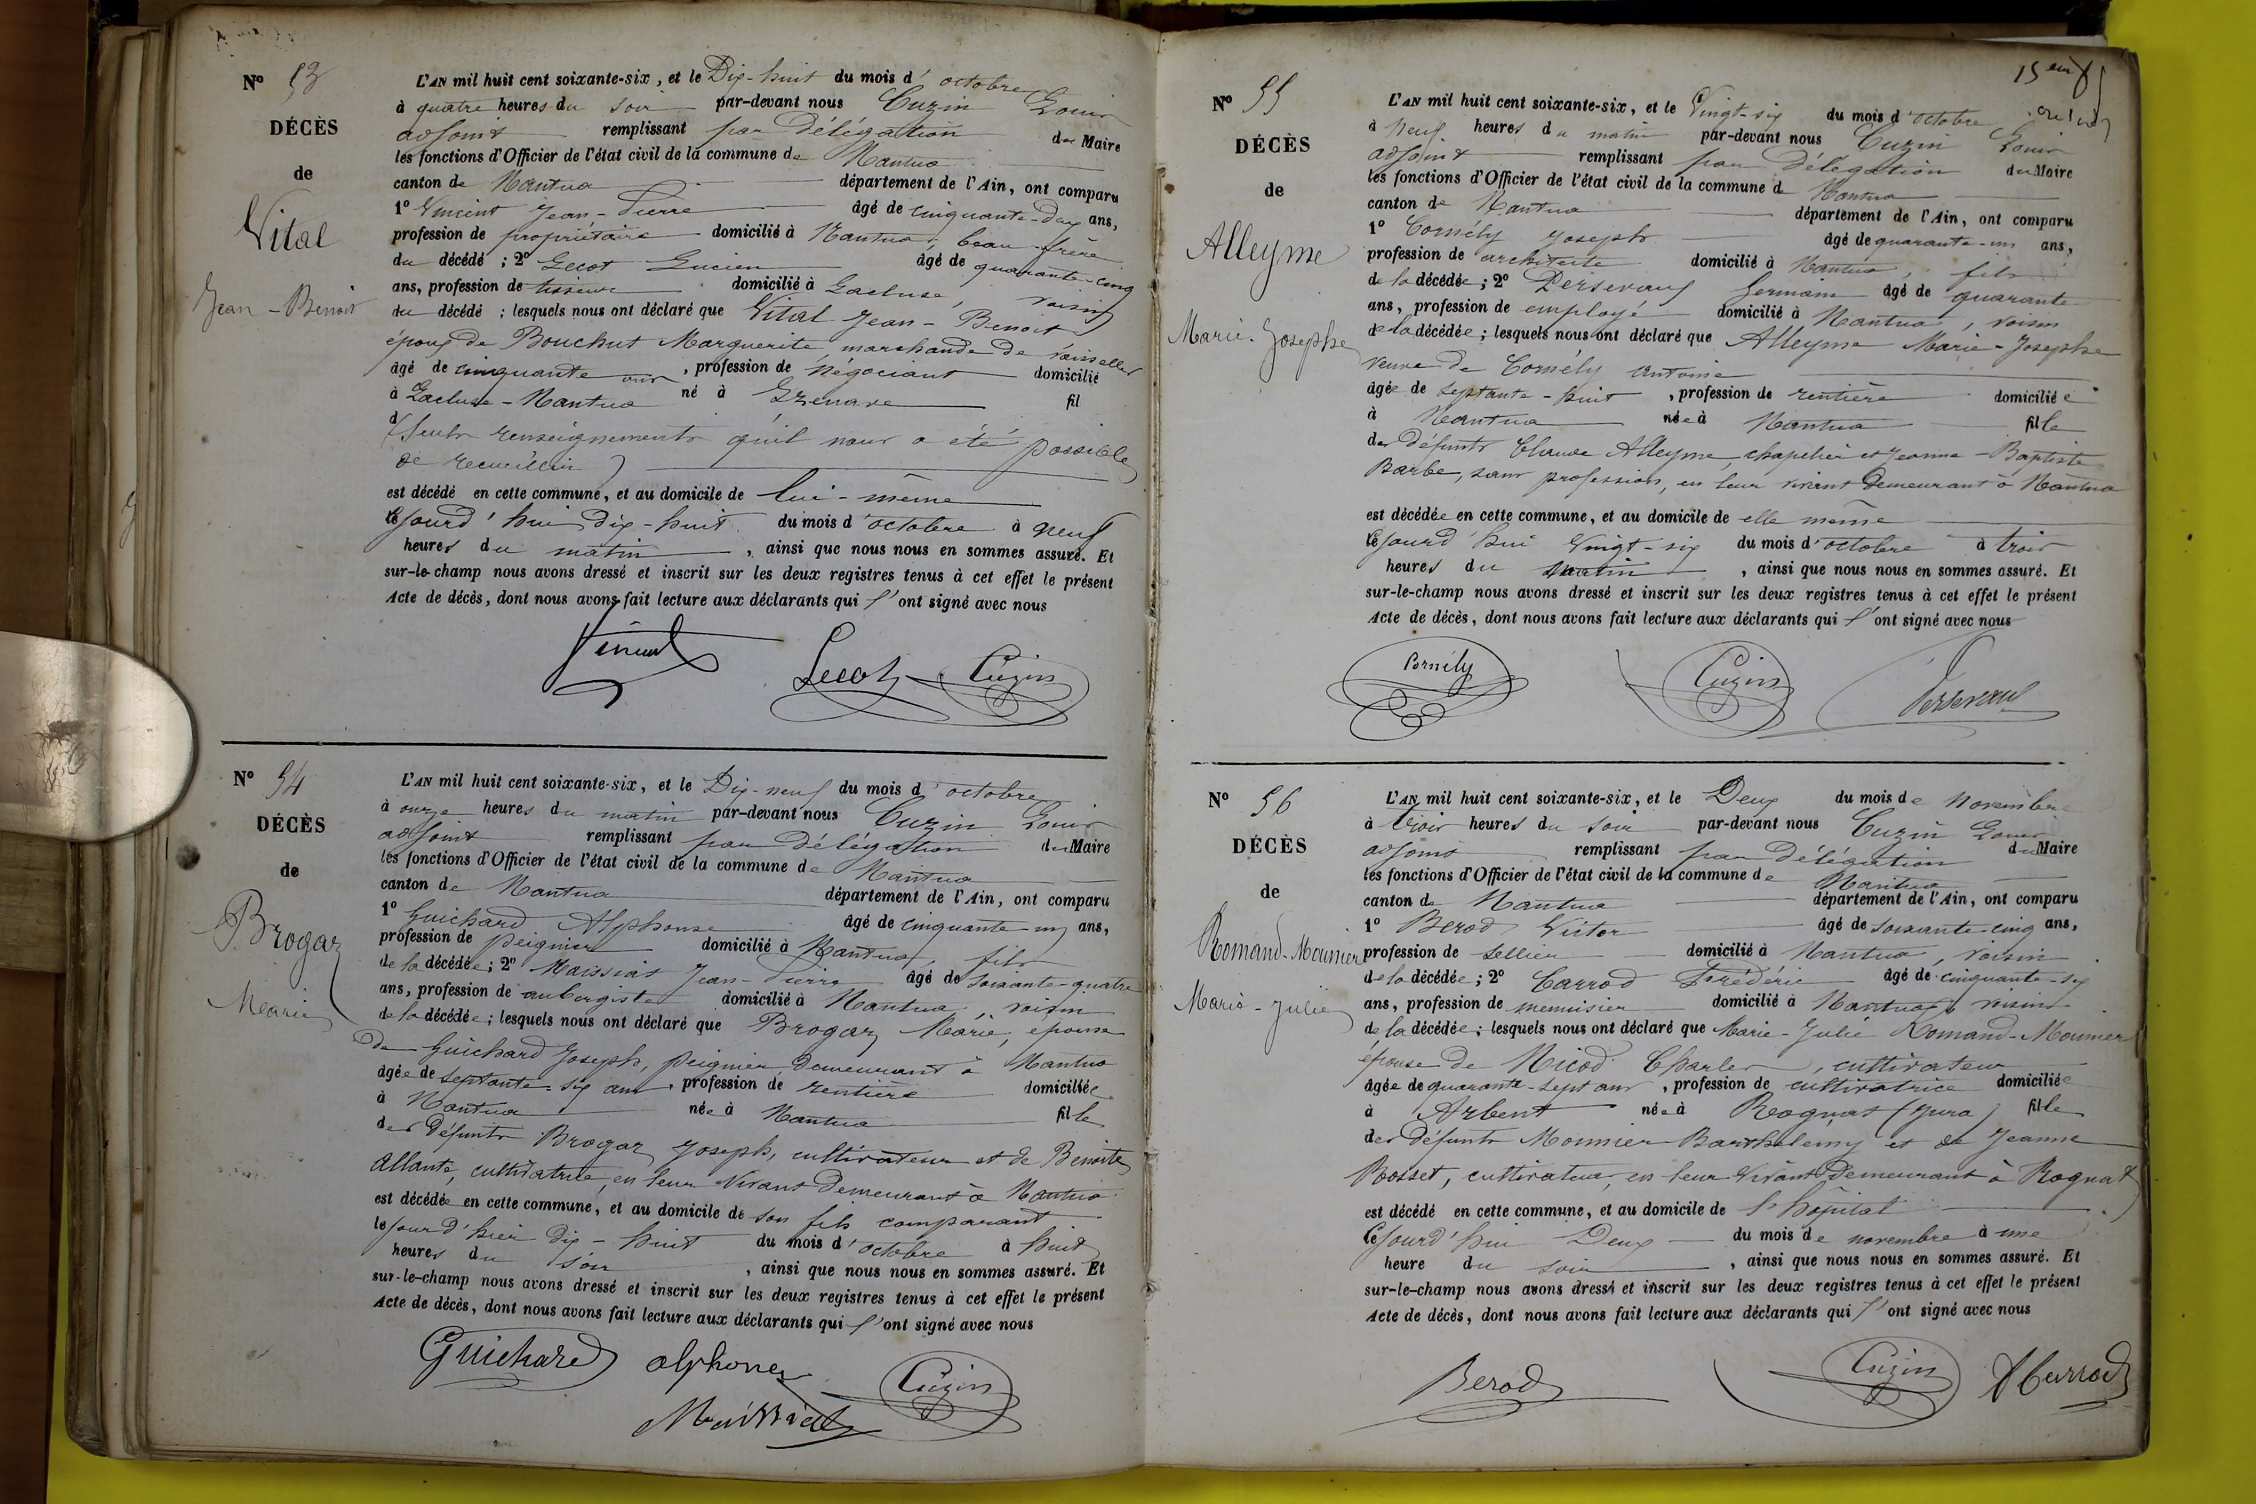 N° 53
DÉCÈS
de
Vital
Jean-Benoit
L'AN mil huit cent soixante-six, et le Dix-huit du mois d'octobre
à quatre heures du soir par-devant nous Cuzin Louis
adjoint remplissant par Délégation du Maire
les fonctions d'Officier de l'état civil de la commune de Nantua
canton de Nantua département de l'Ain, ont comparu
1° Vincent Jean-Pierre âgé de cinquante-deux ans,
profession de propriétaire domicilié à Nantua, beau-frère
du décédé ; 2° Lecot Lucien âgé de quarante-cinq
ans, profession de tisseur domicilié à Lacluse, voisin
du décédé ; lesquels nous ont déclaré que Vital Jean-Benoit
époux de Bouchut Marguerite, marchande de vaisselles
âgé de cinquante ans, profession de négociant domicilié
à Lacluse-Nantua né à Izenave fil
d
(seuls renseignements qu'il nous a été possible
de recueillir)
est décédé en cette commune, et au domicile de lui-même
cejourd'hui dix-huit du mois d'octobre à neuf
heures du matin, ainsi que nous nous en sommes assuré. Et
sur-le-champ nous avons dressé et inscrit sur les deux registres tenus à cet effet le présent
Acte de décès, dont nous avons fait lecture aux déclarants qui l'ont signé avec nous
Vincent
Lecot
Cuzin
N° 54
DÉCÈS
de
Brogaz
Marie
L'AN mil huit cent soixante-six, et le Dix-neuf du mois d'octobre
à onze heures du matin par-devant nous Cuzin Louis
adjoint remplissant par Délégation du Maire
les fonctions d'Officier de l'état civil de la commune de Nantua
canton de Nantua département de l'Ain, ont comparu
1° Guichard Alphonse âgé de cinquante un ans,
profession de peignier domicilié à Nantua, fils
de la décédée ; 2° Maissiat Jean-Pierre âgé de soixante-quatre
ans, profession de aubergiste domicilié à Nantua, voisin
de la décédée ; lesquels nous ont déclaré que Brogaz Marie, épouse
de Guichard Joseph, peignier demeurant à Nantua
âgée de septante-six ans, profession de rentière domiciliée
à Nantua née à Nantua fille
des défunts Brogaz Joseph, cultivateur et de Benoite
Allante, cultivatrice, en leur vivant demeurant à Nantua
est décédée en cette commune, et au domicile de son fils comparant
le jour d'hier dix-huit du mois d'octobre à huit
heures du soir, ainsi que nous nous en sommes assuré. Et
sur-le-champ nous avons dressé et inscrit sur les deux registres tenus à cet effet le présent
Acte de décès, dont nous avons fait lecture aux déclarants qui l'ont signé avec nous
Guichard alphonse
Cuzin
Maissiat
N° 55
DÉCÈS
de
Alleyme
Marie-Josephe
L'AN mil huit cent soixante-six, et le Vingt-six du mois d'octobre
à neuf heures du matin par-devant nous Cuzin Louis
adjoint remplissant par Délégation du Maire
les fonctions d'Officier de l'état civil de la commune de Nantua
canton de Nantua département de l'Ain, ont comparu
1° Cornély Joseph âgé de quarante-un ans,
profession de architecte domicilié à Nantua, fils
de la décédée ; 2° Persevaux Germain âgé de quarante
ans, profession de employé domicilié à Nantua, voisin
de la décédée ; lesquels nous ont déclaré que Alleyme Marie-Josephe
veuve de Cornély Antoine
âgée de septante-huit, profession de rentière domiciliée
à Nantua née à Nantua fille
des défunts Claude Alleyme, chapelier et Jeanne-Baptiste
Barbe, sans profession, en leur vivant demeurant à Nantua
est décédée en cette commune, et au domicile de elle même
cejourd'hui Vingt-six du mois d'octobre à trois
heures du matin, ainsi que nous nous en sommes assuré. Et
sur-le-champ nous avons dressé et inscrit sur les deux registres tenus à cet effet le présent
Acte de décès, dont nous avons fait lecture aux déclarants qui l'ont signé avec nous
Cornély
Cuzin
Persevaux
N° 56
DÉCÈS
de
Romand-Mounier
Marie-Julie
L'AN mil huit cent soixante-six, et le Deux du mois de novembre
à trois heures du soir par-devant nous Cuzin Louis
adjoint remplissant par Délégation du Maire
les fonctions d'Officier de l'état civil de la commune de Nantua
canton de Nantua département de l'Ain, ont comparu
1° Berod Victor âgé de soixante-cinq ans,
profession de sellier domicilié à Nantua, voisin
de la décédée ; 2° Carrod Frédéric âgé de cinquante-six
ans, profession de menuisier domicilié à Nantua, voisin
de la décédée ; lesquels nous ont déclaré que Marie-Julie Romand-Mounier
épouse de Nicod Charles, cultivateur
âgée de quarante-sept ans, profession de cultivatrice domiciliée
à Arbent née à Rognat (Jura) fille
des défunts Mounier Barthelemy et de Jeanne
Rosset, cultivateur, en leur vivant demeurant à Rognat
est décédé en cette commune, et au domicile de l'hôpital
cejourd'hui Deux du mois de novembre à une
heure du soir, ainsi que nous nous en sommes assuré. Et
sur-le-champ nous avons dressé et inscrit sur les deux registres tenus à cet effet le présent
Acte de décès, dont nous avons fait lecture aux déclarants qui l'ont signé avec nous
Berod
Cuzin
Carrod